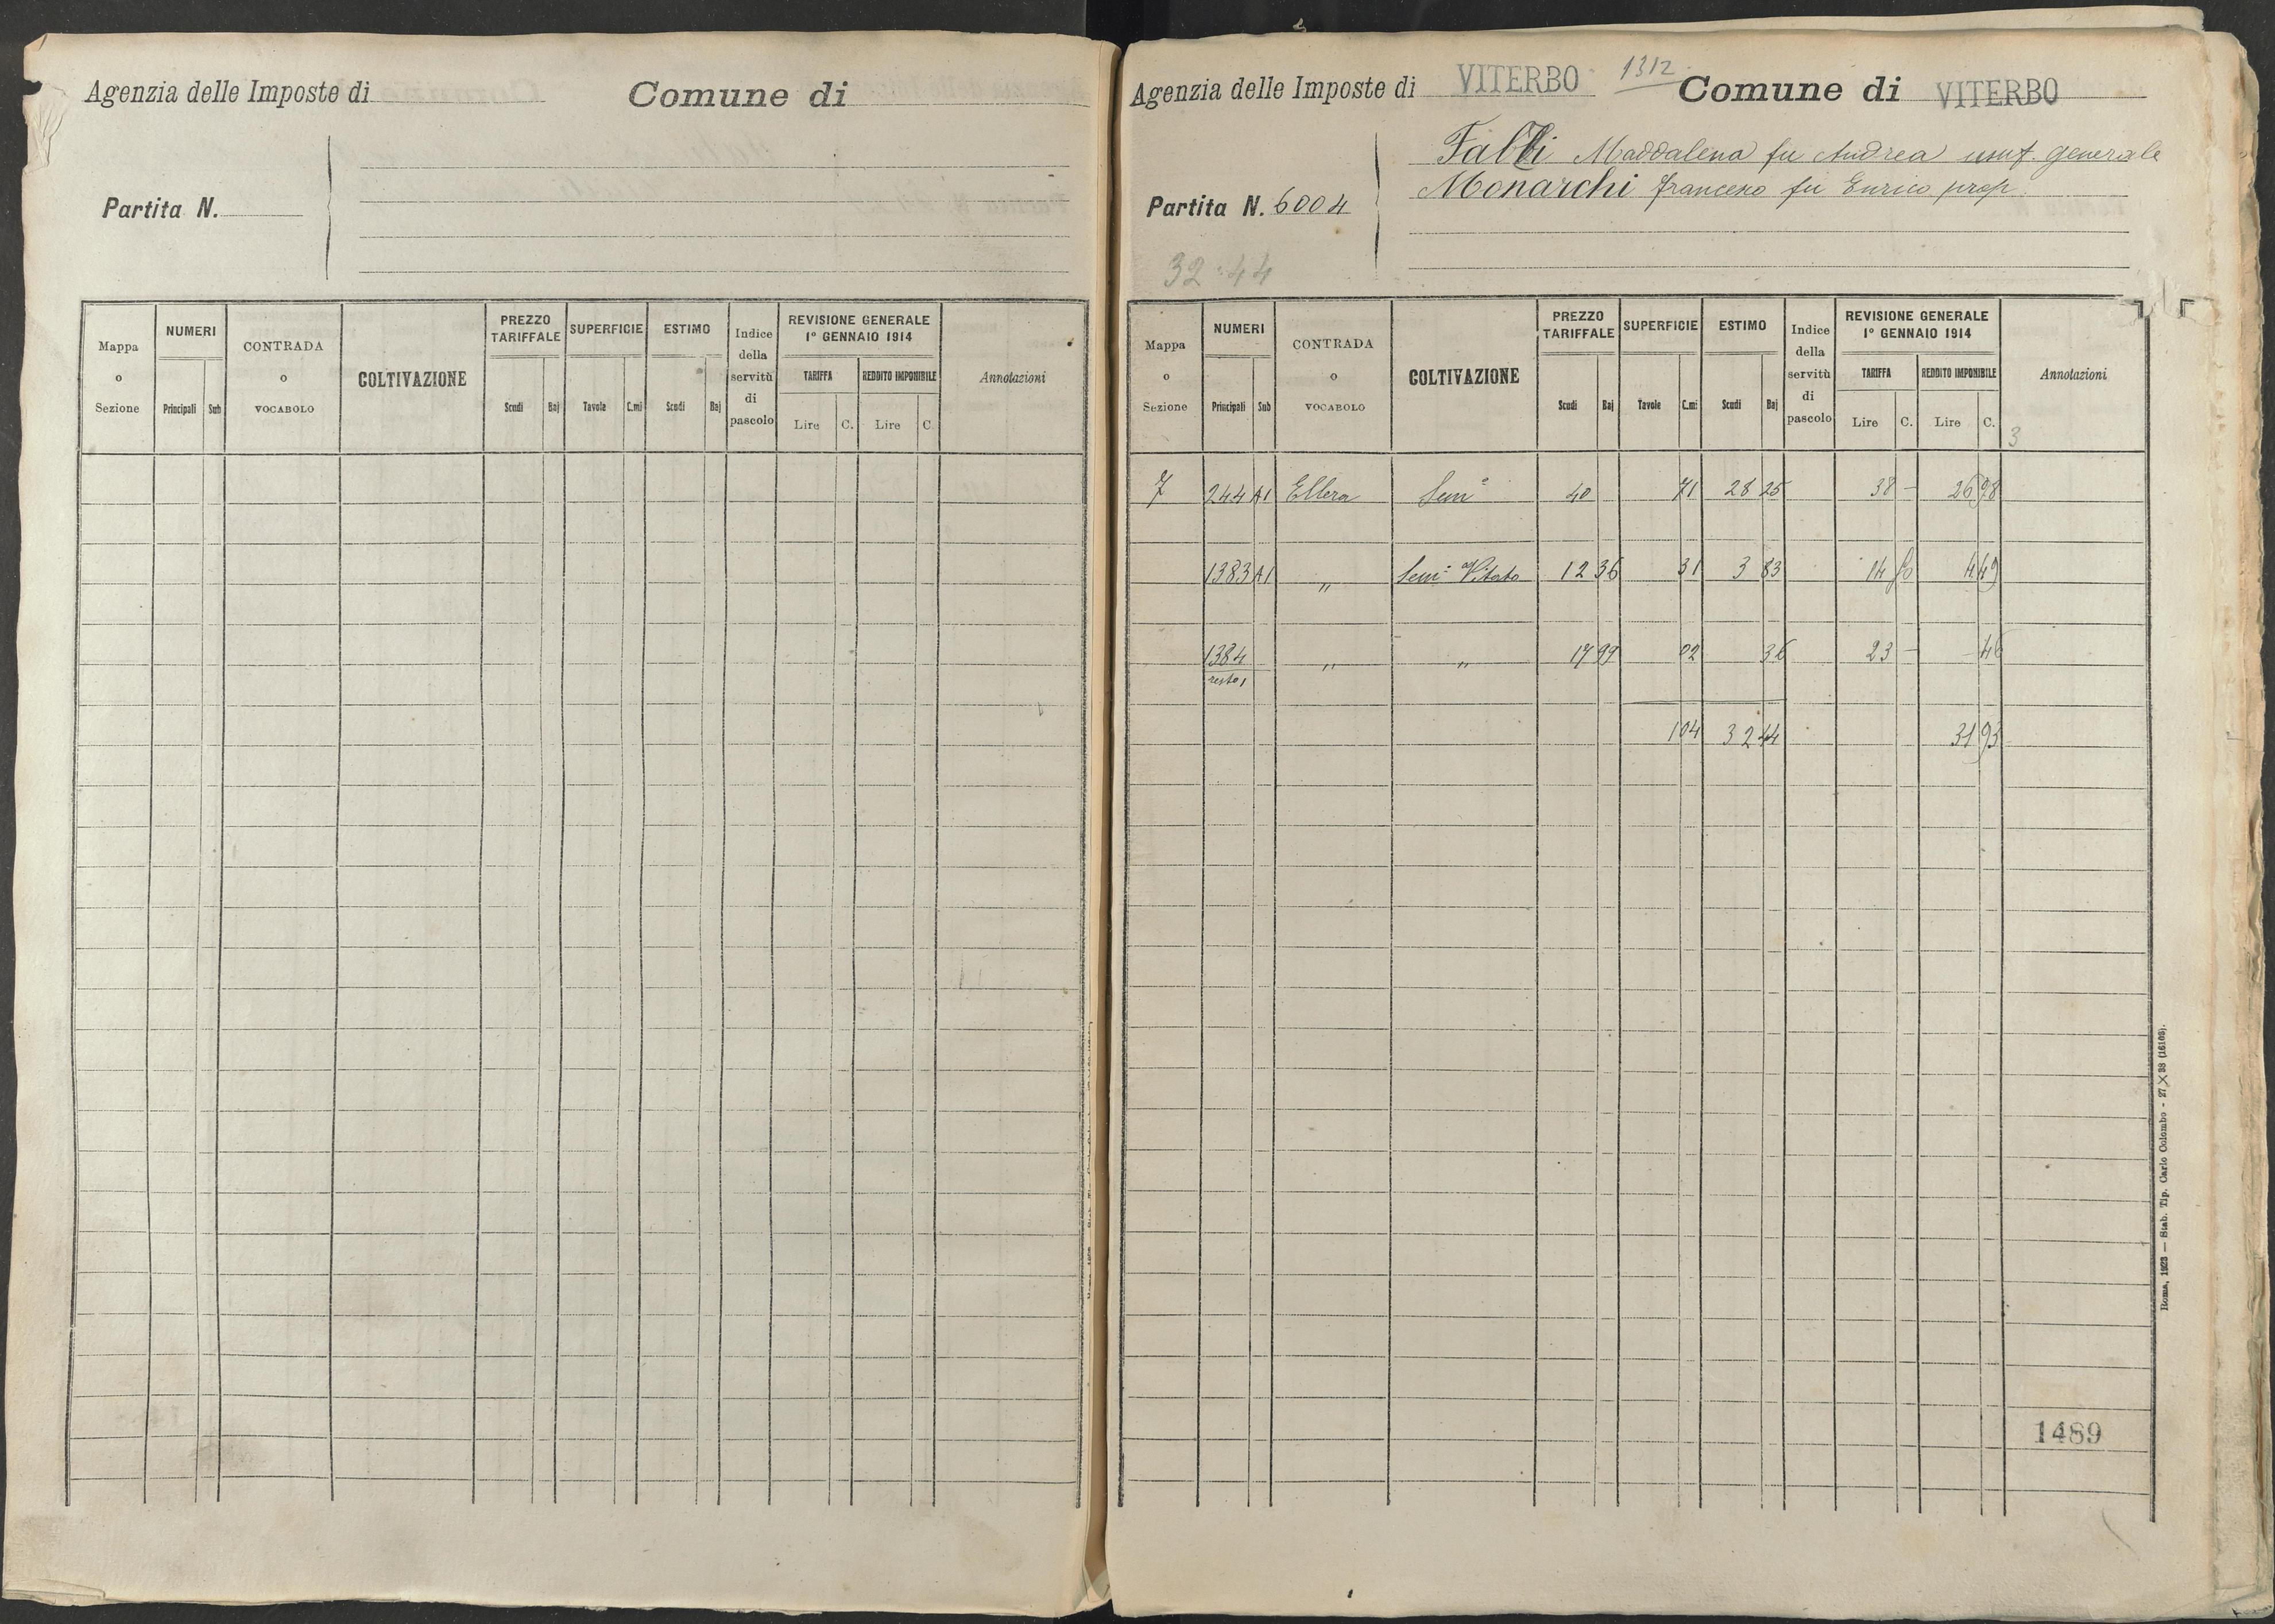 Agenzia delle Imposte di Comune di
Partita N.
Mappa o Sezione NUMERI Principali Sub CONTRADA o VOCABOLO COLTIVAZIONE PREZZO TARIFFALE Scudi Baj SUPERFICIE Tavole C.mi ESTIMO Scudi Baj Indice della servitù di pascolo REVISIONE GENERALE 1° GENNAIO 1914 TARIFFA Lire C. REDDITO IMPONIBILE Lire C. Annotazioni
Agenzia delle Imposte di VITERBO 1312 Comune di VITERBO
Maddalena fu Andrea usuf. generale
Monarchi Francesco fu Enrico prop.
Partita N. 6004
32:44
Mappa o Sezione NUMERI Principali Sub CONTRADA o VOCABOLO COLTIVAZIONE PREZZO TARIFFALE Scudi Baj SUPERFICIE Tavole C.mi ESTIMO Scudi Baj Indice della servitù di pascolo REVISIONE GENERALE 1° GENNAIO 1914 TARIFFA Lire C. REDDITO IMPONIBILE Lire C. Annotazioni
3
7 244 A1 Ellera Sem° 40 71 28 25 38 - 26 98
1383 A1 " Sem° Vitato 12 36 31 3 83 14 50 4 49
1384 " " 17 99 02 36 23 - - 46
resto 1
1 04 32 44 31 93
1489
Roma, 1923 — Stab. Tip. Carlo Colombo - 27 X 38 (16108).